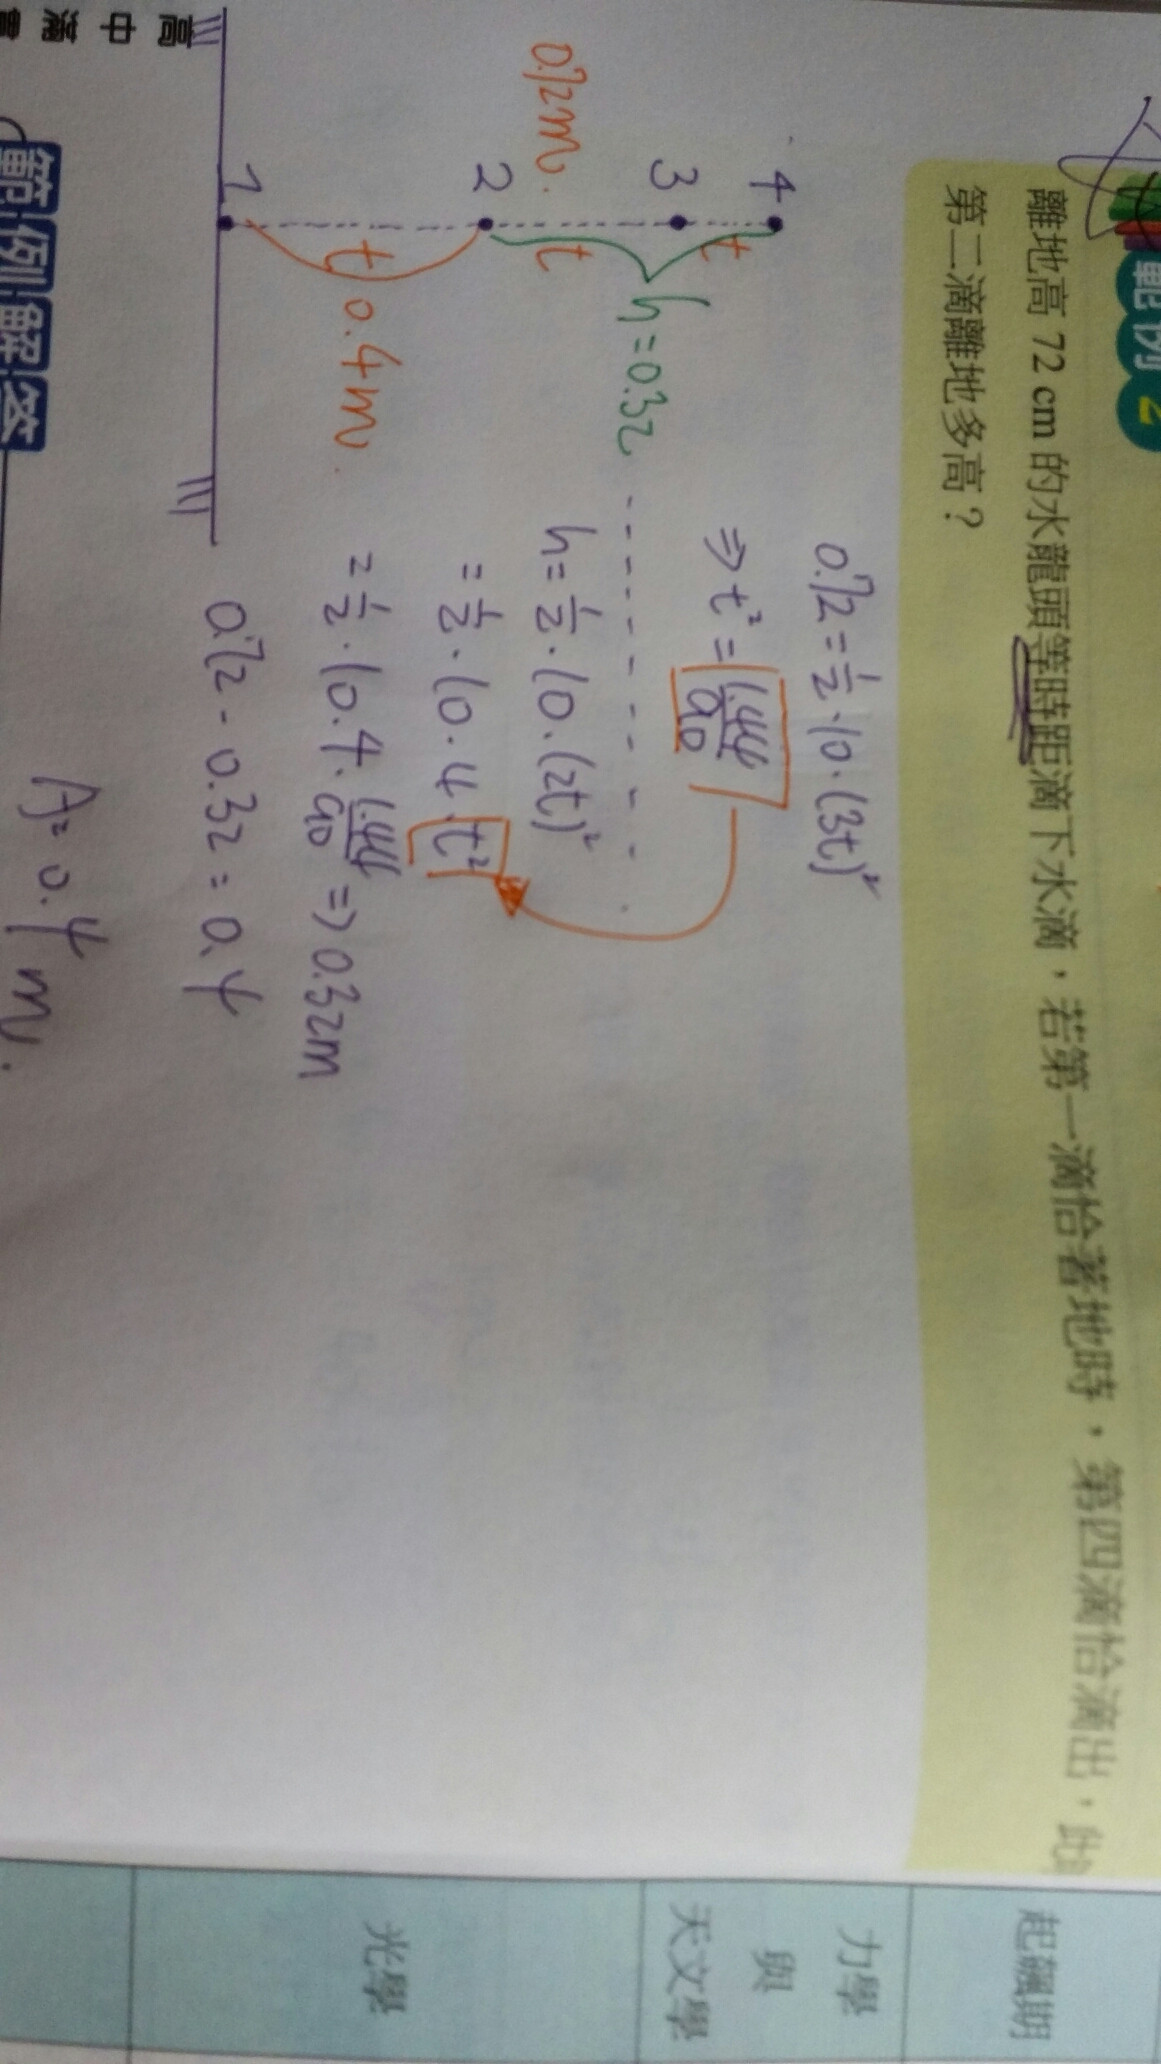 範例 2
離地高 72 cm 的水龍頭等時距滴下水滴，若第一滴恰著地時，第四滴恰滴出，此
第二滴離地多高？
4
3
2
1
t
t
t
0.72m.
h=0.32
0.4m.
0.72=½·10·(3t)²
⇒t²=1.44/90
h=½·10·(2t)²
=½·10·4·t²
=½·10·4·1.44/90 ⇒0.32m
0.72-0.32=0.4
A=0.4m.
範例解答
高中滿
起飆期
力學
與
天文學
光學